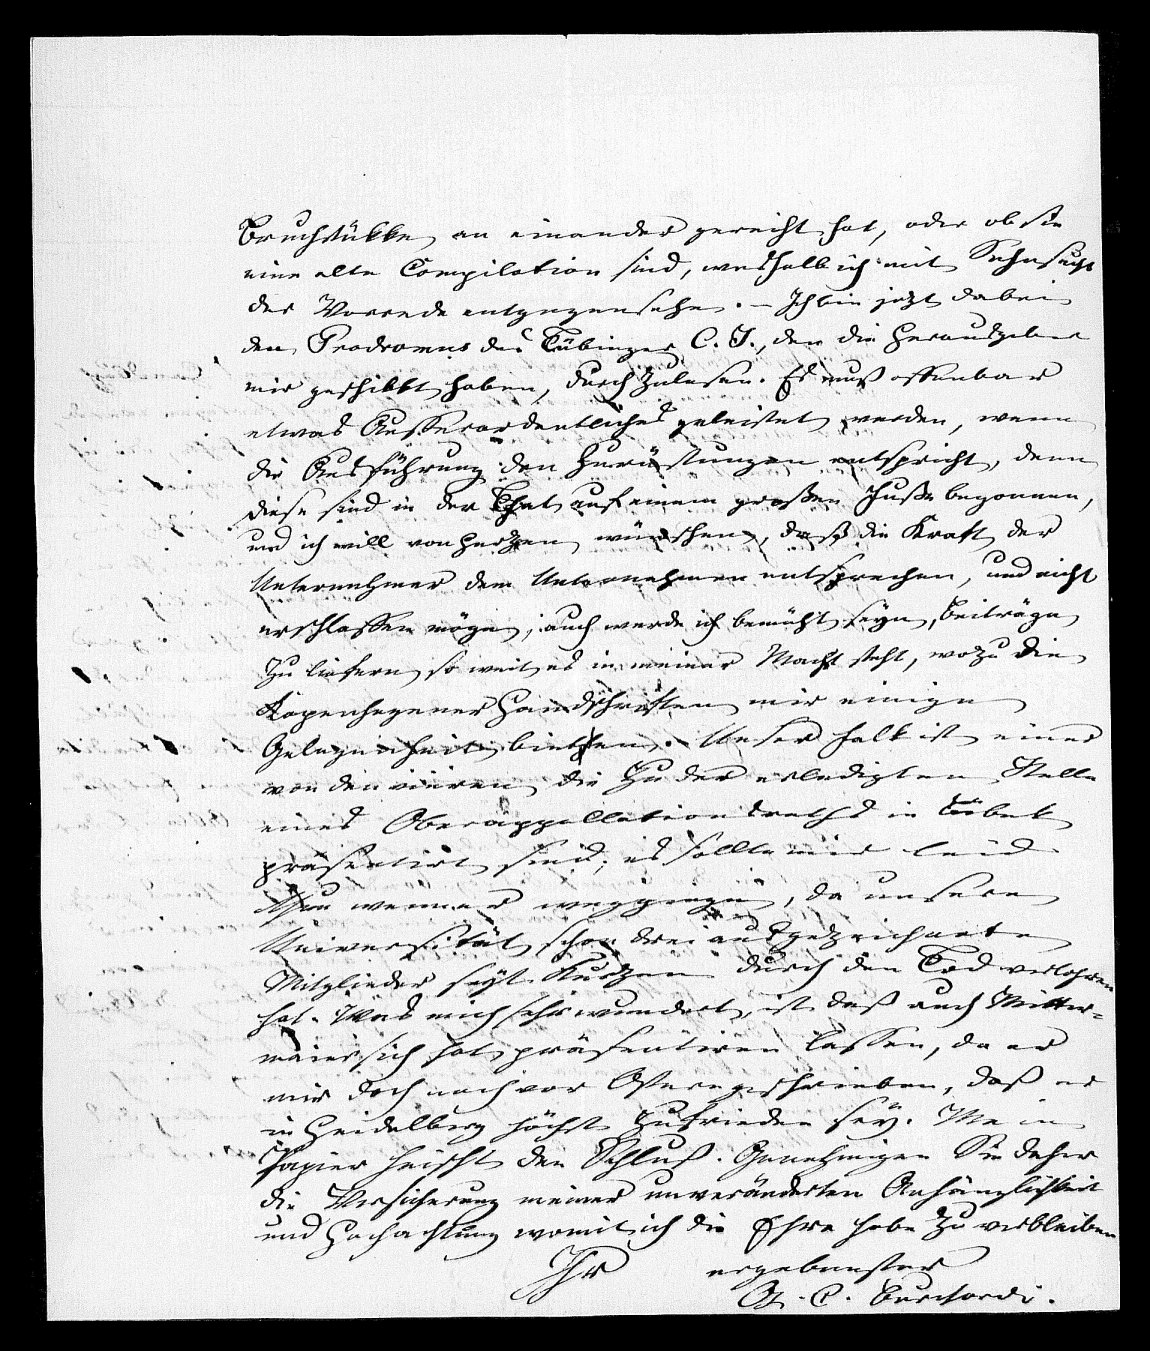 Bruchstükke an einander gereiht hat, oder ob sie
eine alte Compilation sind, weshalb ich mit Sehnsucht
der Vorrede entgegensehe. – Ich bin jezt dabei
den Prodromus des Tübinger C. J., den die Herausgeber
mir geschikkt haben, durch zulesen. Es muß offenbar
etwas Ausserordentliches geleistet werden, wenn
die Ausführung den Zurüstungen entspricht, denn
diese sind in der That auf einem großen Fuße begonnen,
und ich will von Herzen wünschen, daß die Kraft der
Unternehmer dem Unternehmen entsprechen, und nicht
erschlaffen möge; auch werde ich bemüht seyn, Beiträge
zu liefern so weit es in meiner Macht steht, wozu die
Kopenhagener Handschriften mir einige
Gelegenheit bieten. Unser Falk ist einer
von den vieren die zu der erledigten Stelle
eines Oberappellationsraths in Lübek
präsentirt sind; es sollte mir leid
thun wenn er wegginge, da unsere
Universität schon drei ausgezeichnete
Mitglieder seyt Kurzem durch den Tod verlohren
hat. Was mich sehr wundert, ist daß auch Mitter-
maier sich hat präsentiren lassen, da er
mir doch noch vor Ostern geschrieben, daß er
in Heidelberg höchst zufrieden sey. Mein
Papier heischt den Schluß. Genehmigen Sie daher
die Versicherung meiner unveränderten Anhänglichkeit
und Hochachtung womit ich die Ehre habe zu verbleiben
Ihr ergebenster
G. C. Burchardi.